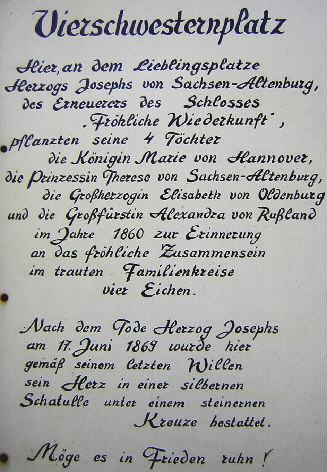 Vierschwesternplatz
Hier, an dem Lieblingsplatze
Herzogs Josephs von Sachsen-Altenburg,
des Erneuerers des Schlosses
„Fröhliche Wiederkunft",
pflanzten seine 4 Töchter
die Königin Marie von Hannover,
die Prinzessin Therese von Sachsen-Altenburg,
die Großherzogin Elisabeth von Oldenburg
und die Großfürstin Alexandra von Rußland
im Jahre 1860 zur Erinnerung
an das fröhliche Zusammensein
im trauten Familienkreise
vier Eichen.
Nach dem Tode Herzog Josephs
am 17. Juni 1869 wurde hier
gemäß seinem letzten Willen
sein Herz in einer silbernen
Schatulle unter einem steinernen
Kreuze bestattet.
Möge es in Frieden ruhn!